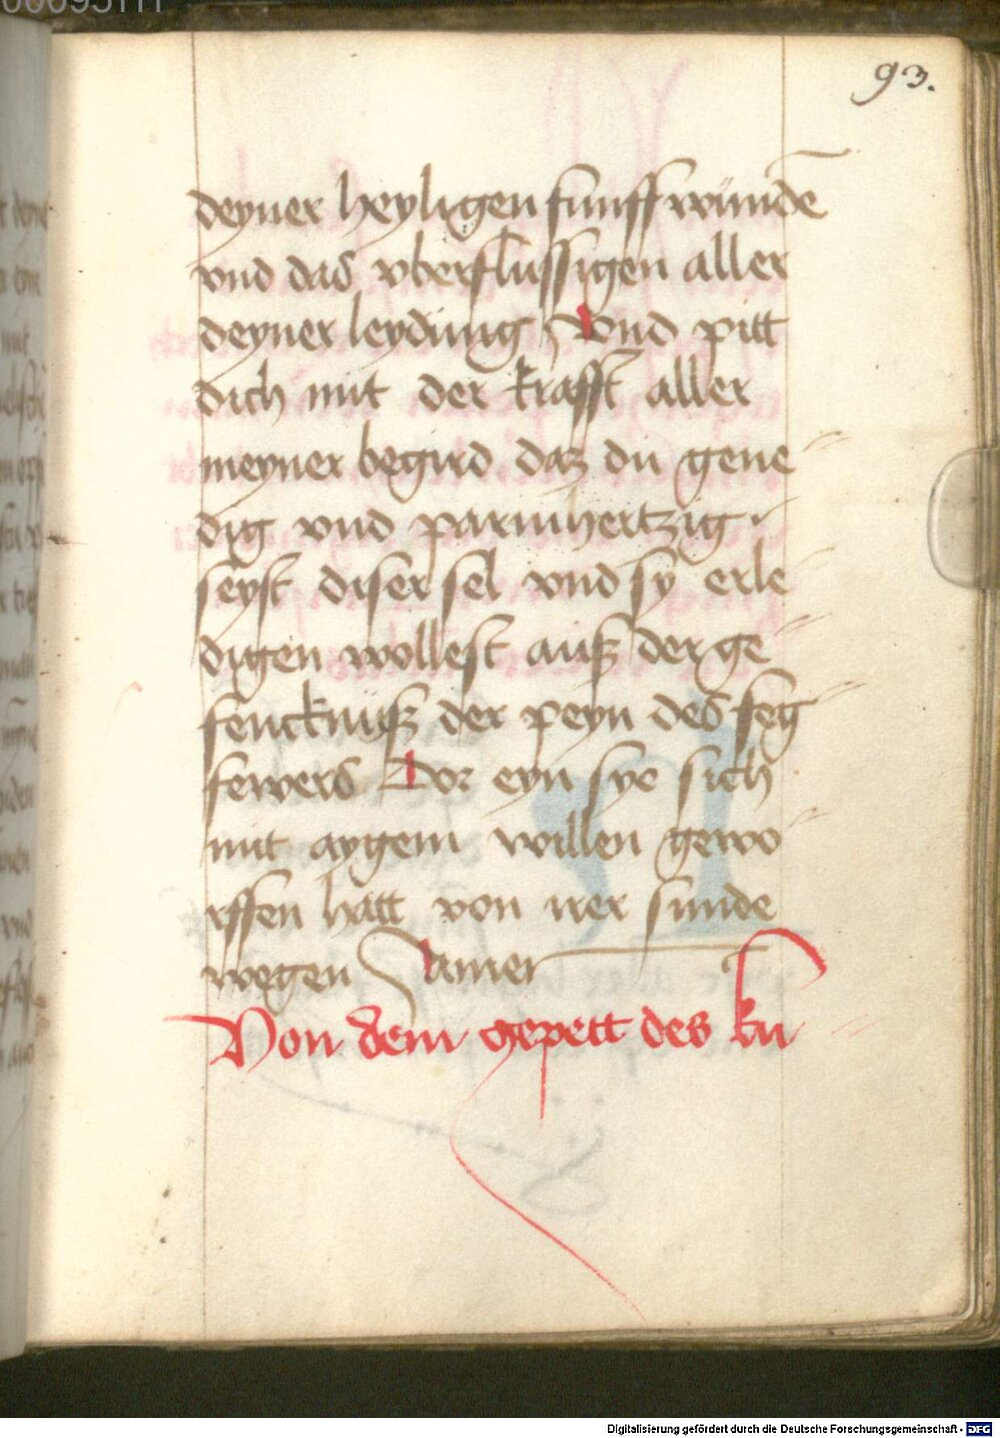 93.
deyner heyligen funff wundē
vnd das vberflussigen aller
deyner leydung Vnd pitt
dich mit der krafft aller
meyner begird daz du gene
dig vnd parmhertzig
seyst diser sel vnd sy erle
digen wollest auß der ge
fencknuß der peyn des feg
fewers Dor eyn sye sich
mit aygem willen gewo
rffen hatt von irer sunde
wegen Amen
Von dem gepett des ku
Digitalisierung gefördert durch die Deutsche Forschungsgemeinschaft - DFG